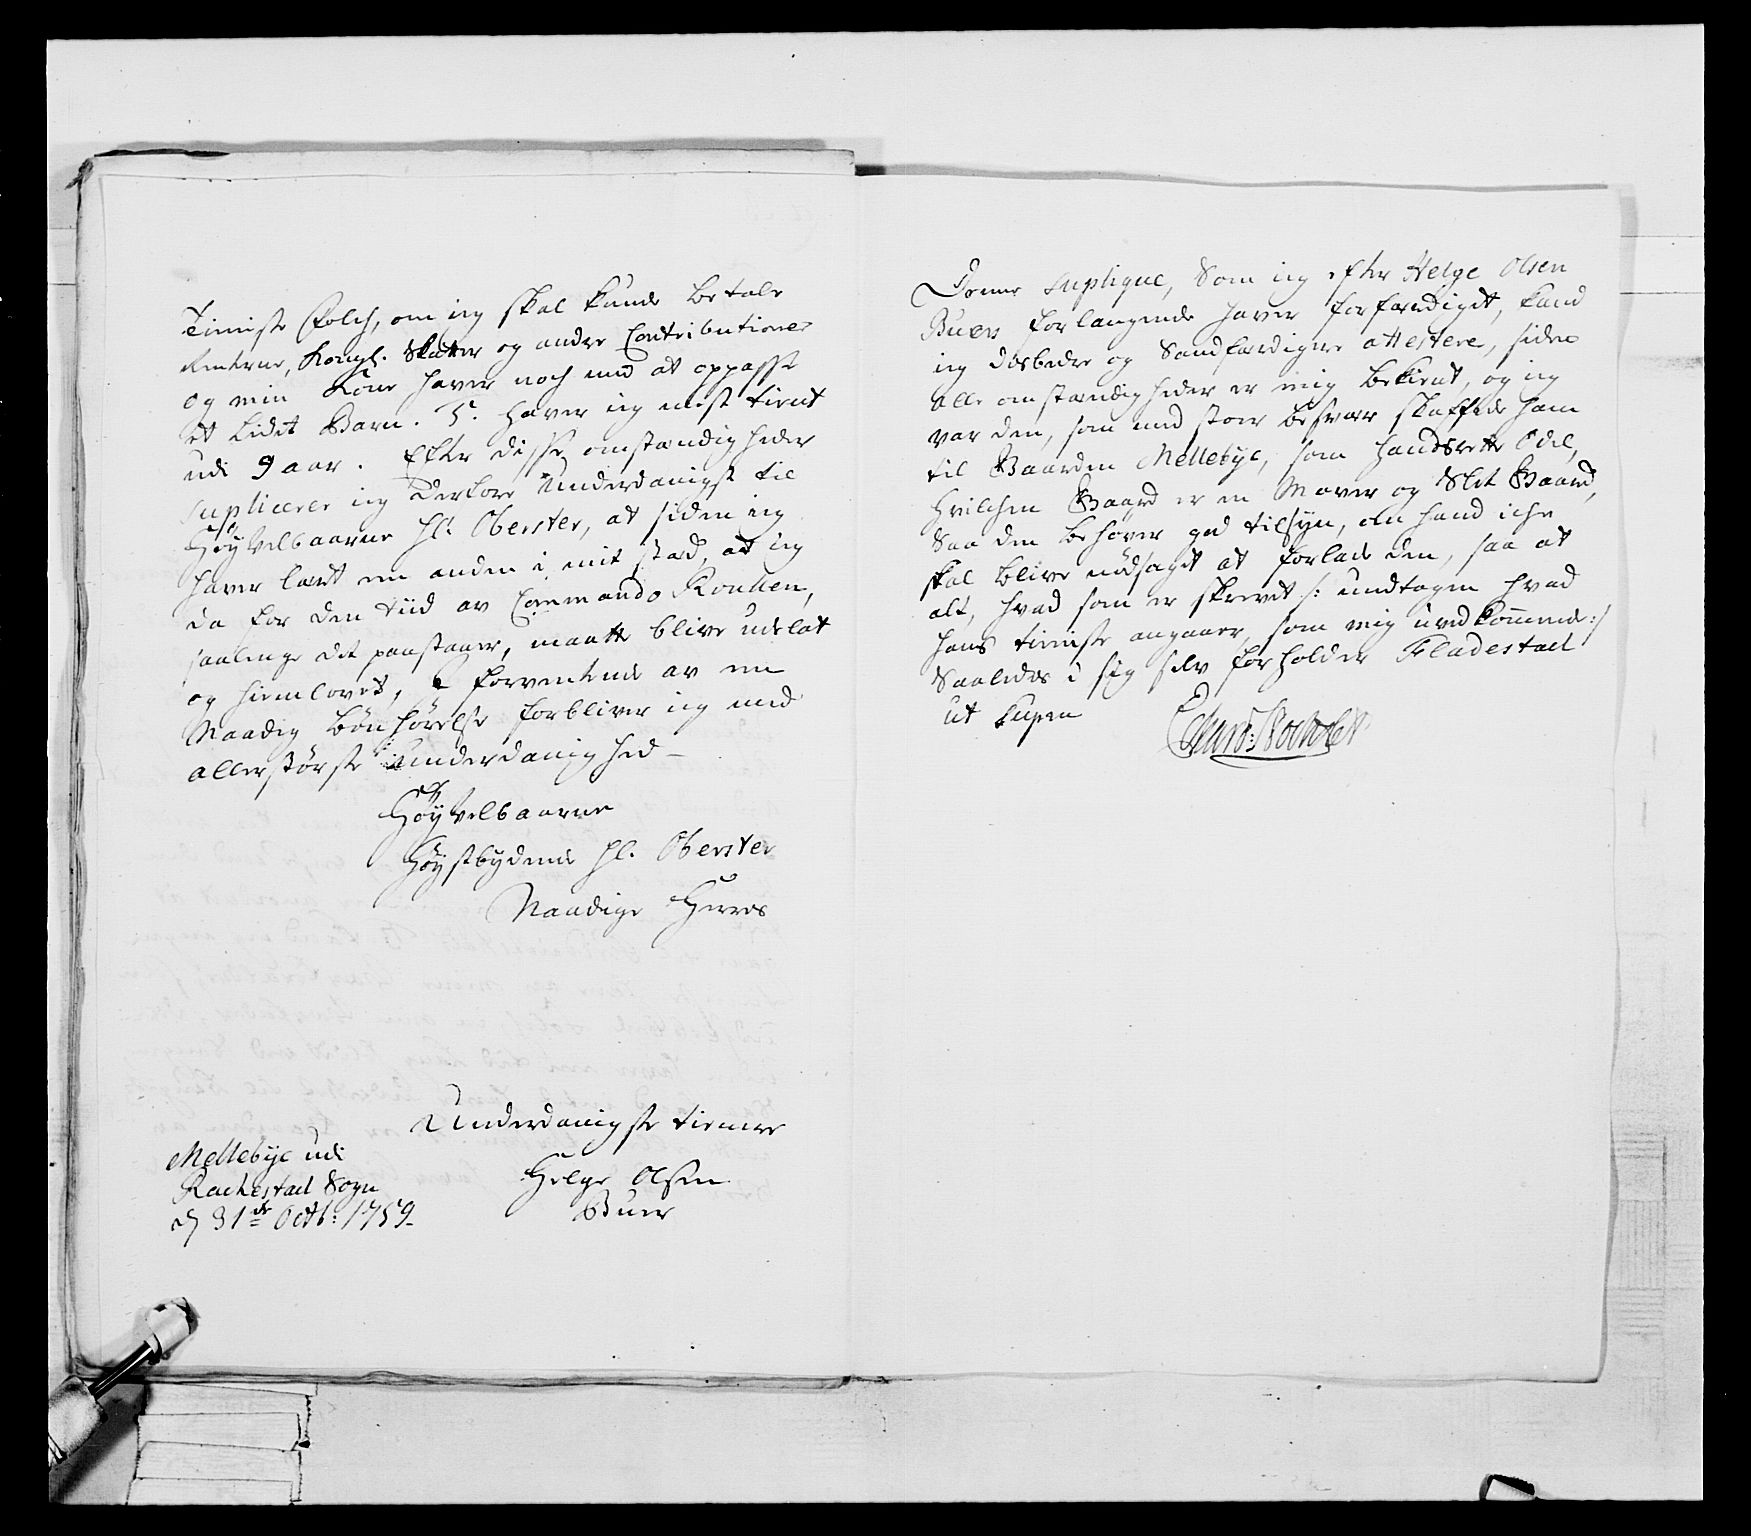 Tieniste Folch, om ieg skal kunde betale
Renterne, Kongl. Skatter og andre Contributioner
og min Kone haver noch med at oppasse
et lidet Barn. 5. haver ieg mist tient
udi 9 aar. Efter disse omstændigheder
suplicerer ieg derfore underdanigst til
HöyVelbaarne Hl. Oberster, at siden ieg
haver læet en anden i mit stæd, at ieg
da for den tiid av Commando Roullen,
saalenge det paastaaer, maatte blive udelat
og hiemlovet, forventende av en
Naadig bönhörelse forbliver ieg med
allerstörste underdanighed –
HöyVelbaarne
Höystbydende Hl. Oberster
Naadige Herres
Underdanigste tienere
Mellebÿe udi
Rachestad Sogn
d 31de Octb: 1759.
Helge Olsen
Buer
Denne Suplique, som ieg efter Helge Olsen
Buers forlangende haver forfærdiget, kand
ieg desbedre og Sandfærdigere attestere, siden
alle omstændigheder er mig bekient, og ieg
var den, som med stoer besvær skaffede ham
til Gaarden Mellebÿe, som hands rette Odel,
hvilchen Gaard er en Maver og Slet Gaard,
saa den behöver god tilsyn, om hand iche
skal blive nödsaget at forlade den, saa at
alt, hvad som er skrevet /: undtagen hvad
hans tieniste angaaer, som mig uvedkommende :/
Saaledes i sig selv forholder Fladestad
ut supra